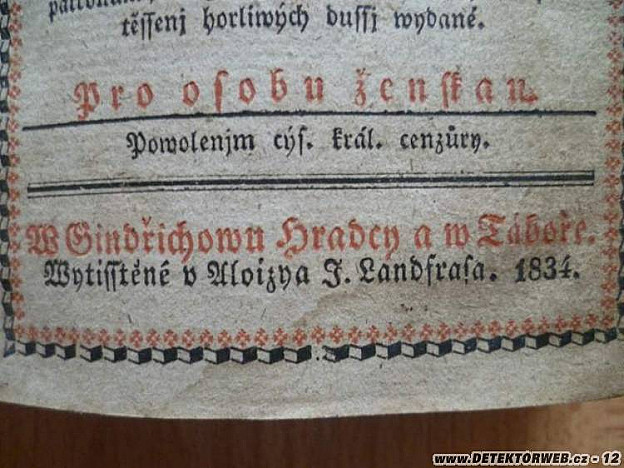 těssenj horliwých dussj wydané.
Pro osobu ženskau.
Powolenjm cýs. král. cenzůry.
W Gindřichowu Hradcy a w Táboře.
Wytisstěné v Aloizya J. Landfrasa. 1834.
www.DETEKTORWEB.cz - 12